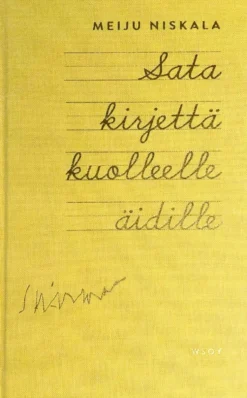 MEIJU NISKALA
Sata
kirjettä
kuolleelle
äidille
WSOY